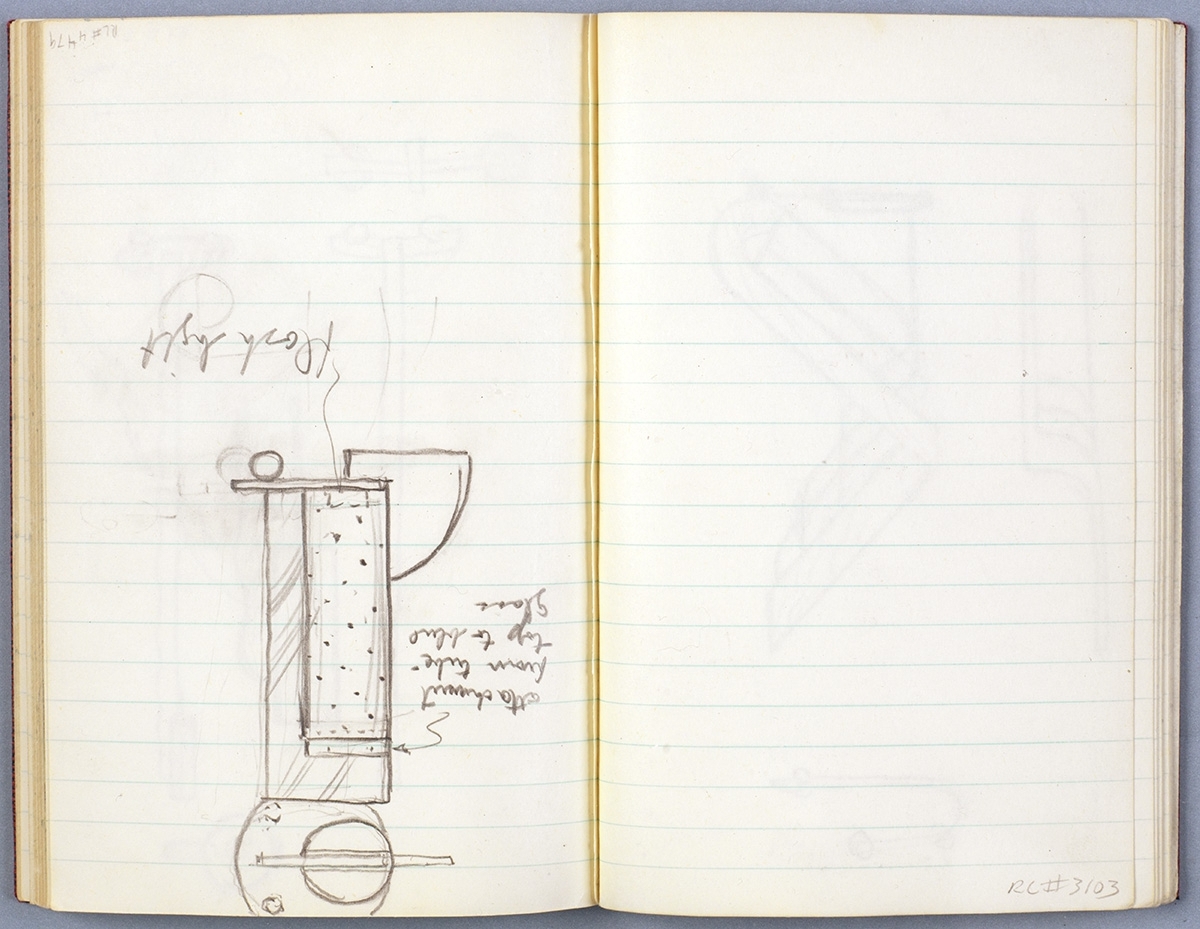 RL#4479
attachment
from tube
top to blue
glass
flash light
RL#3103